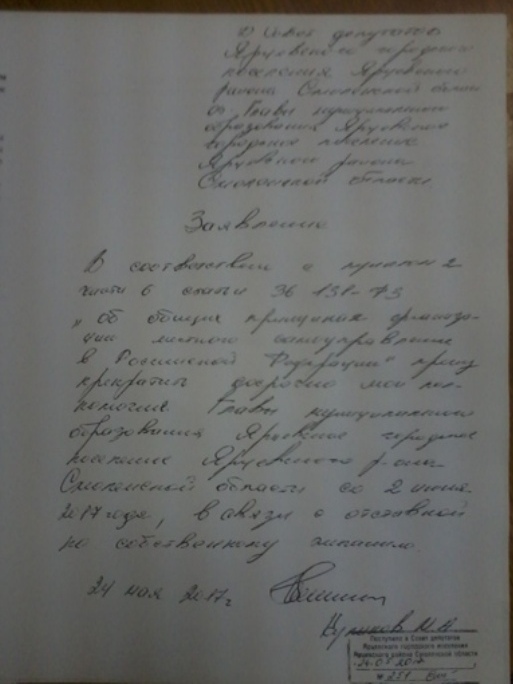 В Совет депутатов
Ярцевского городского
поселения Ярцевского
района Смоленской области
от Главы муниципального
образования Ярцевское
городское поселение
Ярцевского района
Смоленской области
Заявление
В соответствии с пунктом 2
части 6 статьи 36 131-ФЗ
"об общих принципах организа-
ции местного самоуправления
в Российской Федерации" прошу
прекратить досрочно мои пол-
номочия Главы муниципального
образования Ярцевское городское
поселение Ярцевского р-она
Смоленской области со 2 июня
2017 года, в связи с отставкой
по собственному желанию.
24 мая 2017г.
Куликов
Поступило в Совет депутатов
Ярцевского городского поселения
Ярцевского района Смоленской области
24.05.2017
№ 251